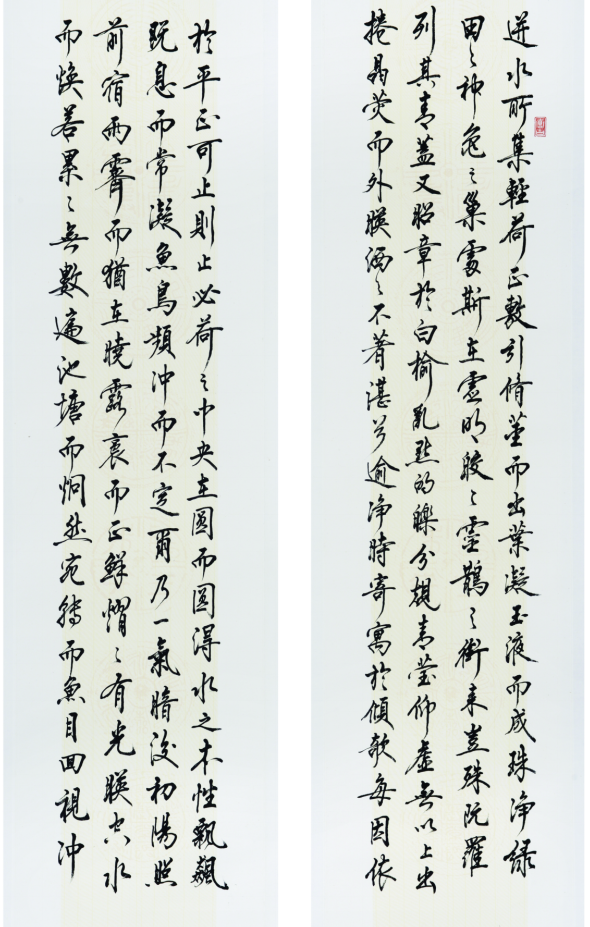 迸水所集輕荷正敷引脩莖而出葉凝玉液而成珠淨緑
田〻神龟之巢處斯在虛明皎〻靈鵲之銜来豈殊既羅
列其青蓋又昭章於白榆亂點的皪分規青瑩仰虛無以上出
捲晶熒而外映洒〻不著湛兮逾淨時寄寓於傾欹每因依
於平正可止則止必荷之中央在圓而圓得水之本性飄飆
既息而常凝魚鳥頻沖而不定爾乃一氣暗浚初陽照
前宿雨霽而猶在曉露裛而正鮮熠〻有光映空水
而煥若累〻無數遍池塘而炯然宛轉而魚目回視沖